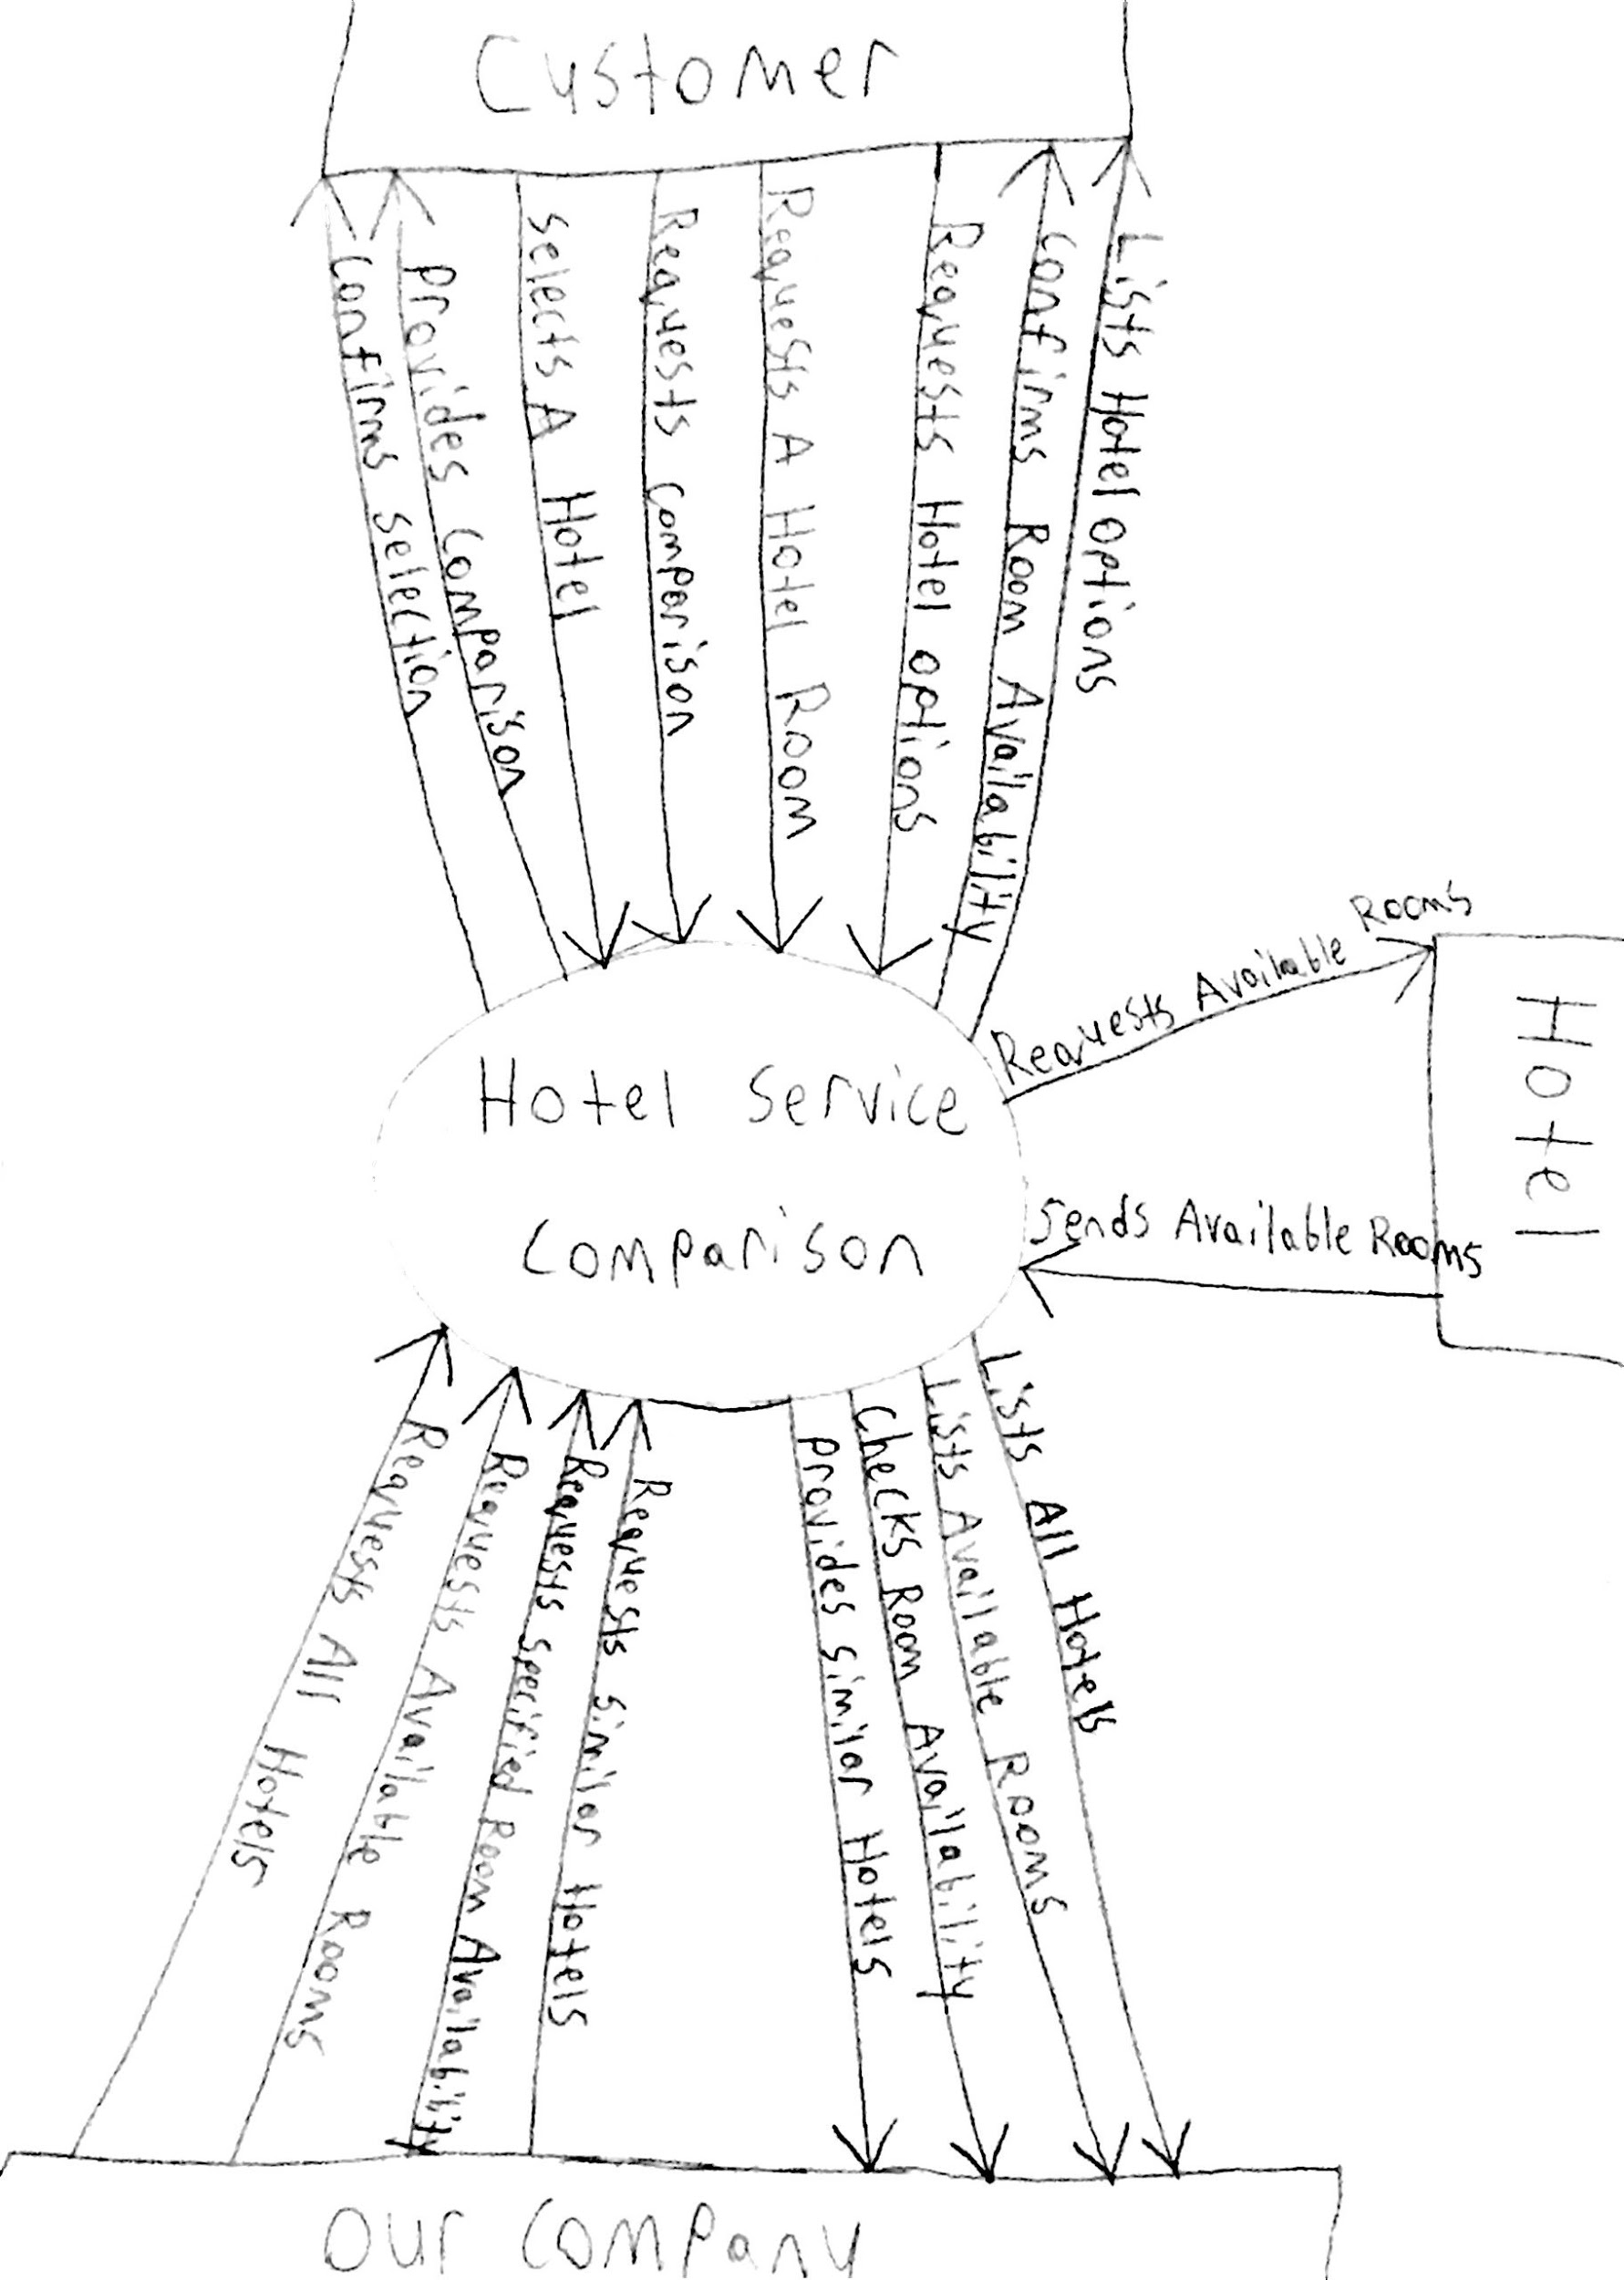 Customer
Confirms selection
Provides Comparison
Selects A Hotel
Requests Comparison
Requests A Hotel Room
Requests Hotel options
Confirms Room Availability
Lists Hotel options
Requests Available Rooms
Hotel
Hotel Service
Comparison
Sends Available Rooms
Requests All Hotels
Requests Available Rooms
Requests Specified Room Availability
Requests Similar Hotels
Provides Similar Hotels
Checks Room Availability
Lists Available Rooms
Lists All Hotels
Our Company